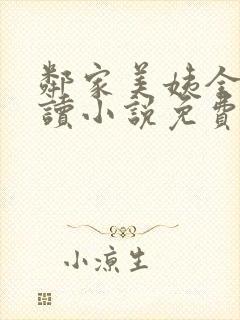 鄰家美姨全
讀小說免費
小涼生